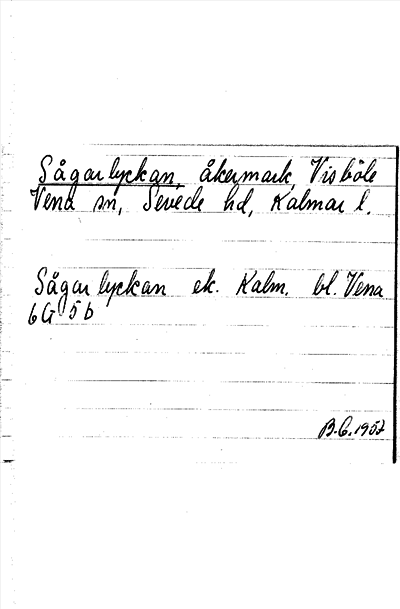 Sågarlyckan, åkermark, Visböle
Vena sn, Sevede hd, Kalmar l.
Sågarlyckan ek. Kalm. bl. Vena
6G 5b
B.G. 1957